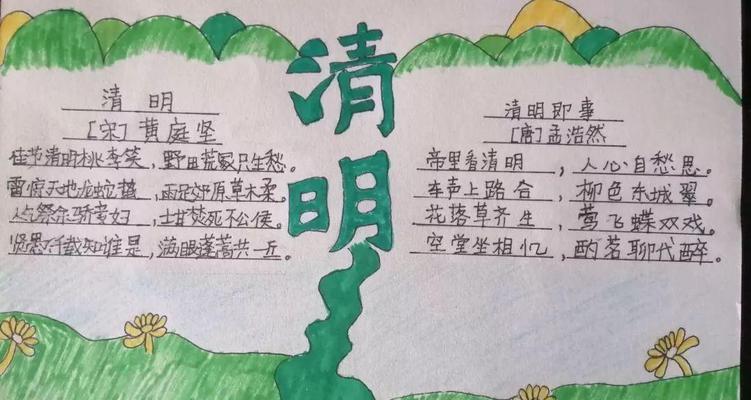 清明
清明
[宋] 黄庭坚
佳节清明桃李笑，野田荒冢只生愁。
雷惊天地龙蛇蛰，雨足郊原草木柔。
祭尔骄妇，士甘焚死不公侯。
贤愚千载知谁是，满眼蓬蒿共一丘。
清明即事
[唐] 孟浩然
帝里看清明，人心自愁思。
车声上路合，柳色东城翠。
花落草齐生，莺飞蝶双戏。
空堂坐相忆，酌茗聊代醉。